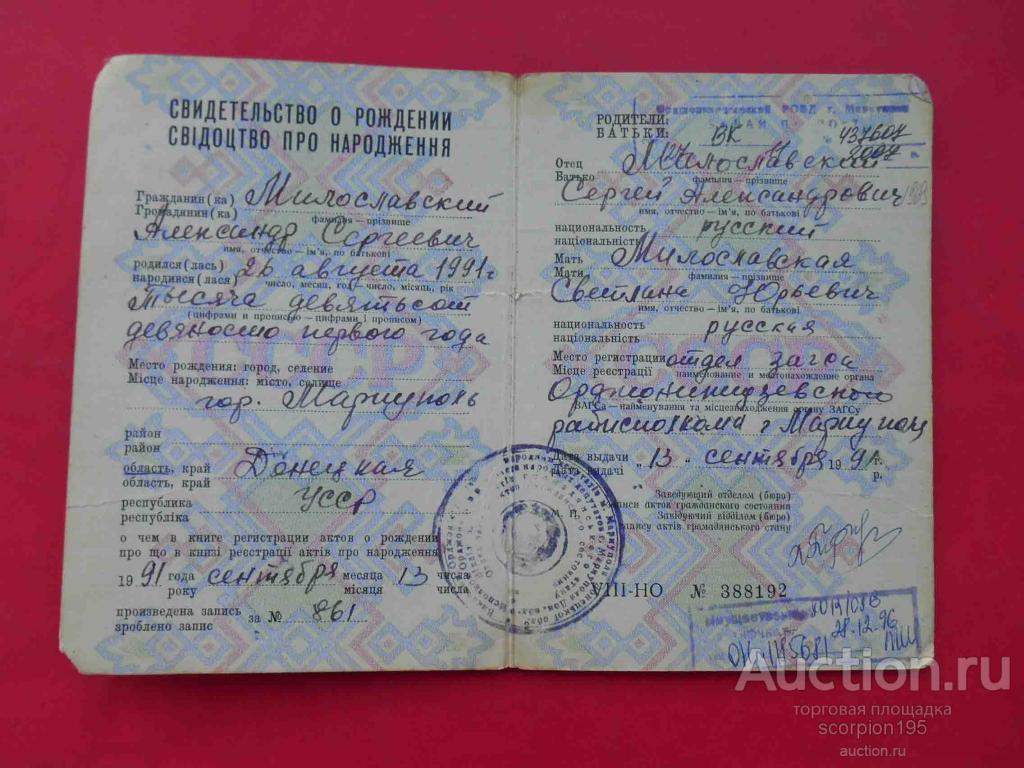 СВИДЕТЕЛЬСТВО О РОЖДЕНИИ
СВІДОЦТВО ПРО НАРОДЖЕННЯ
Гражданин(ка) Милославский
Громадянин(ка)
фамилия — прізвище
Александр Сергеевич
имя, отчество — ім'я, по батькові
родился(лась) 26 августа 1991 г
народився(лася) число, месяц, год — число, місяць, рік
тысяча девятьсот
(цифрами и прописью — цифрами і прописом)
девяносто первого года
Место рождения: город, селение
Місце народження: місто, селище
гор. Мариуполь
район
район
область, край Донецкая
область, край
республика УССР
республіка
о чем в книге регистрации актов о рождении
про що в книзі реєстрації актів про народження
1991 года сентября месяца 13 числа
року місяця числа
произведена запись за № 861
зроблено запис
РОВД г. Мариуполя
РОДИТЕЛИ:
БАТЬКИ: ВК 437607
Отец Милославский
Батько фамилия — прізвище
Сергей Александрович
имя, отчество — ім'я, по батькові
национальность русский
національність
Мать Милославская
Мати фамилия — прізвище
Светлана Юрьевич
имя, отчество — ім'я, по батькові
национальность русская
національність
Место регистрации отдел загса
Місце реєстрації наименование и местонахождение органа
Орджоникидзевского
ЗАГСа — найменування та місцезнаходження органу ЗАГСу
райисполкома г Мариуполь
Дата выдачи "13" сентября 1991 г.
Дата видачі р.
Заведующий отделом (бюро)
записи актов гражданского состояния
М. П. Завідуючий відділом (бюро)
запису актів громадянського стану
VIII-НО № 388192
28.12.96
Auction.ru
торговая площадка
scorpion195
auction.ru